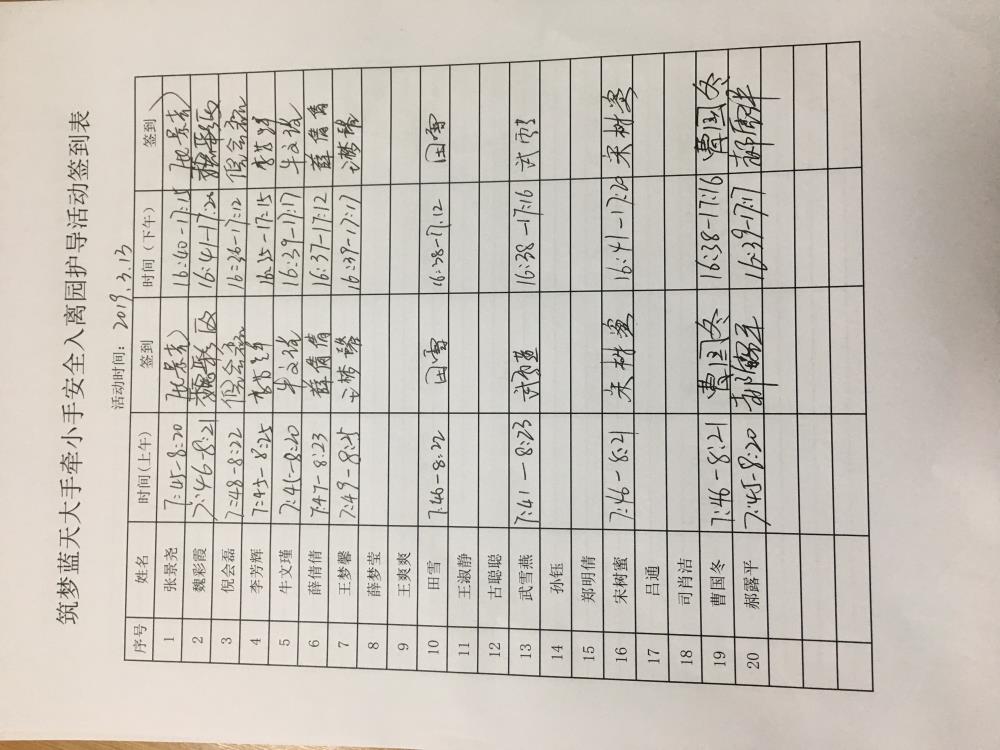 筑梦蓝天大手牵小手安全入离园护导活动签到表
活动时间：2019.3.13
序号 姓名 时间(上午) 签到 时间（下午） 签到
1 张景尧 7:45-8:20 张景尧 16:40-17:15 张景尧
2 魏彩霞 7:46-8:21 魏彩霞 16:41-17:20 魏彩霞
3 倪会磊 7:48-8:22 倪会磊 16:36-17:12 倪会磊
4 李芳辉 7:45-8:25 李芳辉 16:35-17:15 李芳辉
5 牛文瑾 7:45-8:20 牛文瑾 16:39-17:17 牛文瑾
6 薛倩倩 7:47-8:23 薛倩倩 16:37-17:12 薛倩倩
7 王梦馨 7:49-8:25 王梦馨 16:39-17:17 王梦馨
8 薛梦莹
9 王爽爽
10 田雪 7:46-8:22 田雪 16:38-17:12 田雪
11 王淑静
12 古聪聪
13 武雪燕 7:41-8:23 武雪燕 16:38-17:16
14 孙钰
15 郑明倩
16 宋树蜜 7:46-8:21 宋树蜜 16:41-17:20 宋树蜜
17 吕通
18 司肖洁
19 曹国冬 7:46-8:21 曹国冬 16:38-17:16 曹国冬
20 郝露平 7:45-8:20 郝露平 16:39-17:17 郝露平